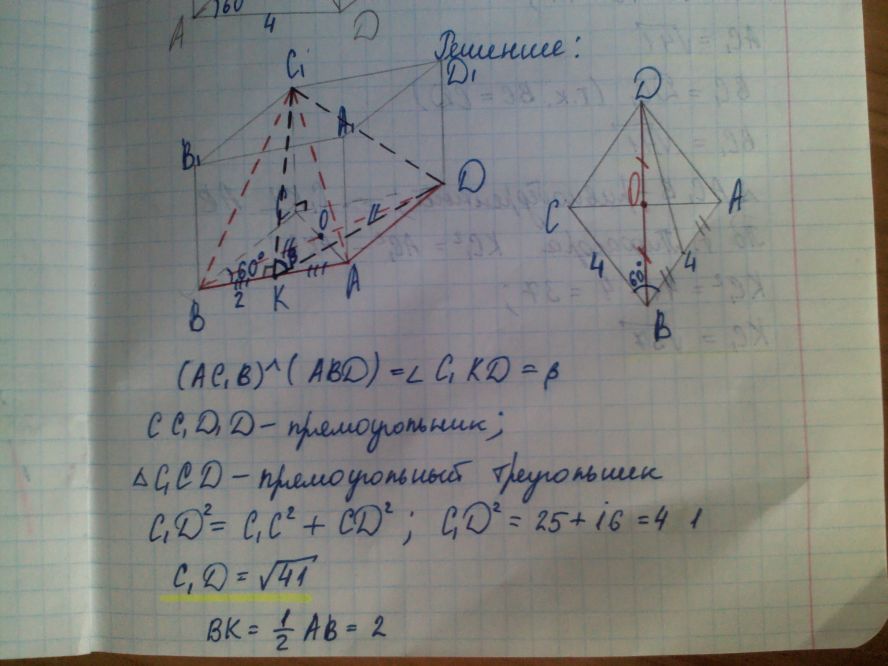 60°
A 4 D
Решение:
C₁ D₁
B₁ A₁
C O D
60° β
B 2 K A
D
C O A
4 4
60°
B
(AC₁B)^(ABD) = ∠C₁KD = β
CC₁D₁D – прямоугольник;
△C₁CD – прямоугольный треугольник
C₁D² = C₁C² + CD²; C₁D² = 25 + 16 = 4 1
C₁D = √41
BK = 1/2 AB = 2